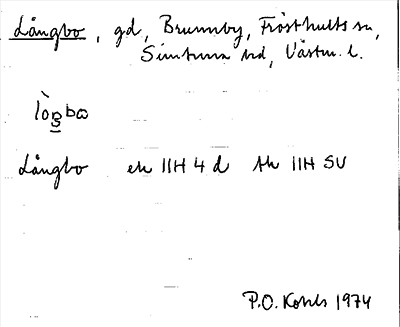 Långbo, gd, Brunnby, Frösthults sn,
Simtuna hd, Västm. l.
Långbo ek 11H 4 d tk 11H SV
P.O. 1974